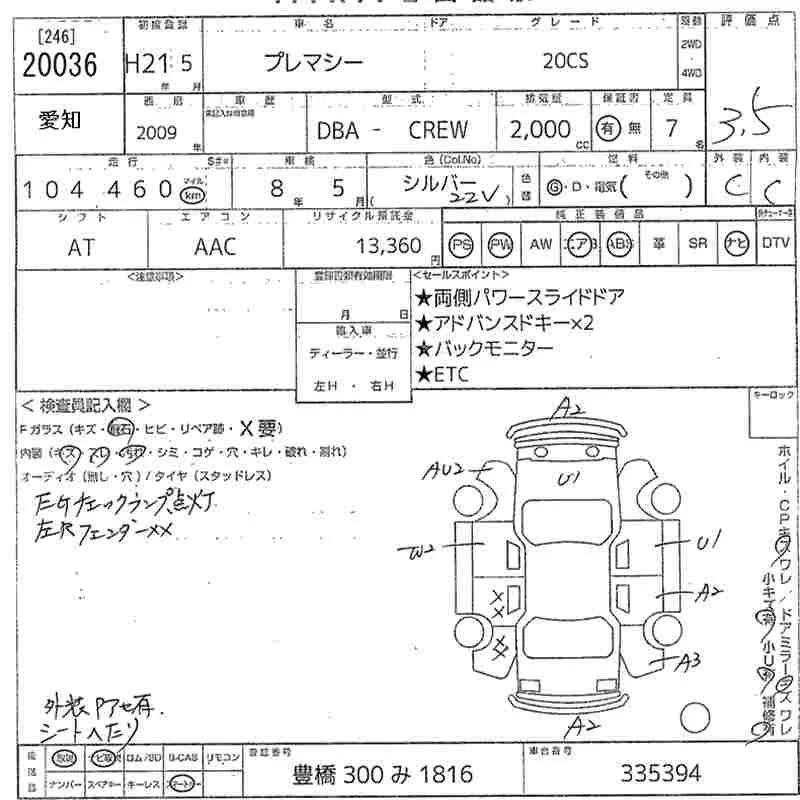 [246]
20036
初度登録
H21 5
年 月
車名
プレマシー
ドア
グレード
20CS
駆動
2WD
4WD
評価点
3.5
愛知
西暦
2009
年
車歴
型式
DBA - CREW
排気量
2,000
CC
保証書
有 無
定員
7
名
走行
104,460
マイル
km
車検
8 年 5 月
色(Col.No)
シルバー
22V
色替
燃料
G・D・電気( その他 )
外装
C
内装
C
シフト
AT
エアコン
AAC
リサイクル預託金
13,360
円
純正装備品
PS PW AW エアB ABS 革 SR ナビ DTV
<注意事項>
登録書類有効期限
月 日
輸入車
ディーラー・並行
左H・右H
<セールスポイント>
★両側パワースライドドア
★アドバンスドキー×2
★バックモニター
★ETC
キーロック
<検査員記入欄>
Fガラス(キズ・飛石・ヒビ・リペア跡・X要)
内装(キズ・スレ・汚れ・シミ・コゲ・穴・キレ・破れ・割れ)
オーディオ(無し・穴)/タイヤ(スタッドレス)
E/Gチェックランプ点灯
左Rフェンダー××
A2
AU2
U1
W2
U1
A2
××
××
A3
A2
ホイル・CPキズワレ/ドアミラーキズワレ
小キズ有 小U有 補修有
外装Pアセ有.
シートへたり
取説 ナビ取説 ロム/SD B-CAS リモコン
ナンバー スペアキー キーレス スマートキー
登録番号
豊橋 300 み 1816
車台番号
335394